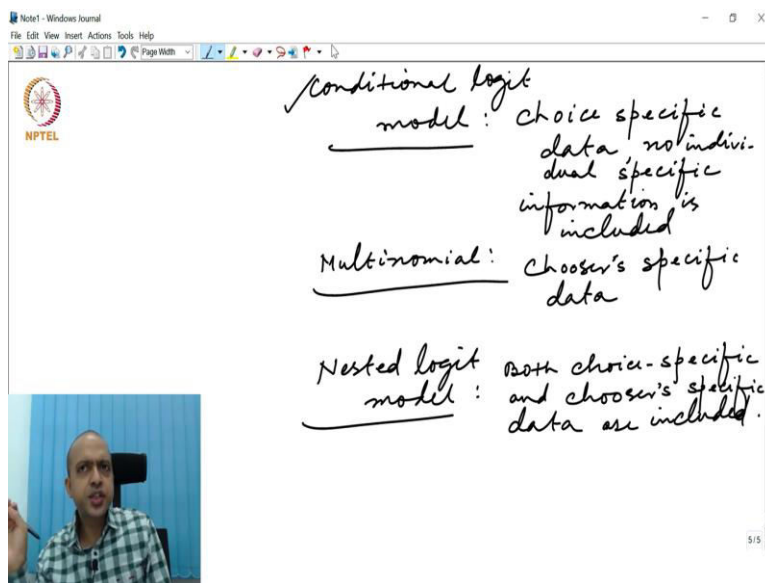 Note1 - Windows Journal
File Edit View Insert Actions Tools Help
Page Width
NPTEL
Conditional logit
model : Choice specific
data, no indivi-
dual specific
information is
included
Multinomial : Chooser's specific
data
Nested logit Both choice-specific
model : and chooser's specific
data are included.
5/5